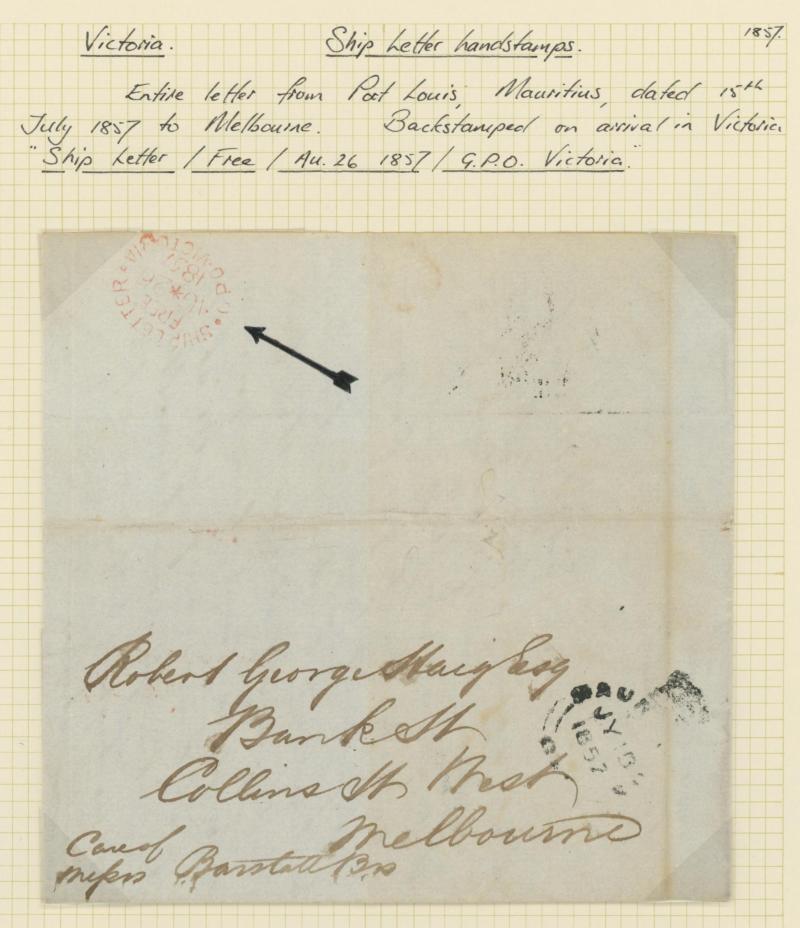 Victoria. Ship Letter handstamps. 1857.
Entire letter from Port Louis, Mauritius, dated 15th
July 1857 to Melbourne. Backstamped on arrival in Victoria
"Ship Letter / Free / Au. 26 1857 / G.P.O. Victoria."
SHIP LETTER FREE AU 26 1857 G.P.O. VICTORIA
Robert George Haig Esq
MAU
JY 15
1857
Bank St
Collins St West
Melbourne
Care of
Messrs Bros